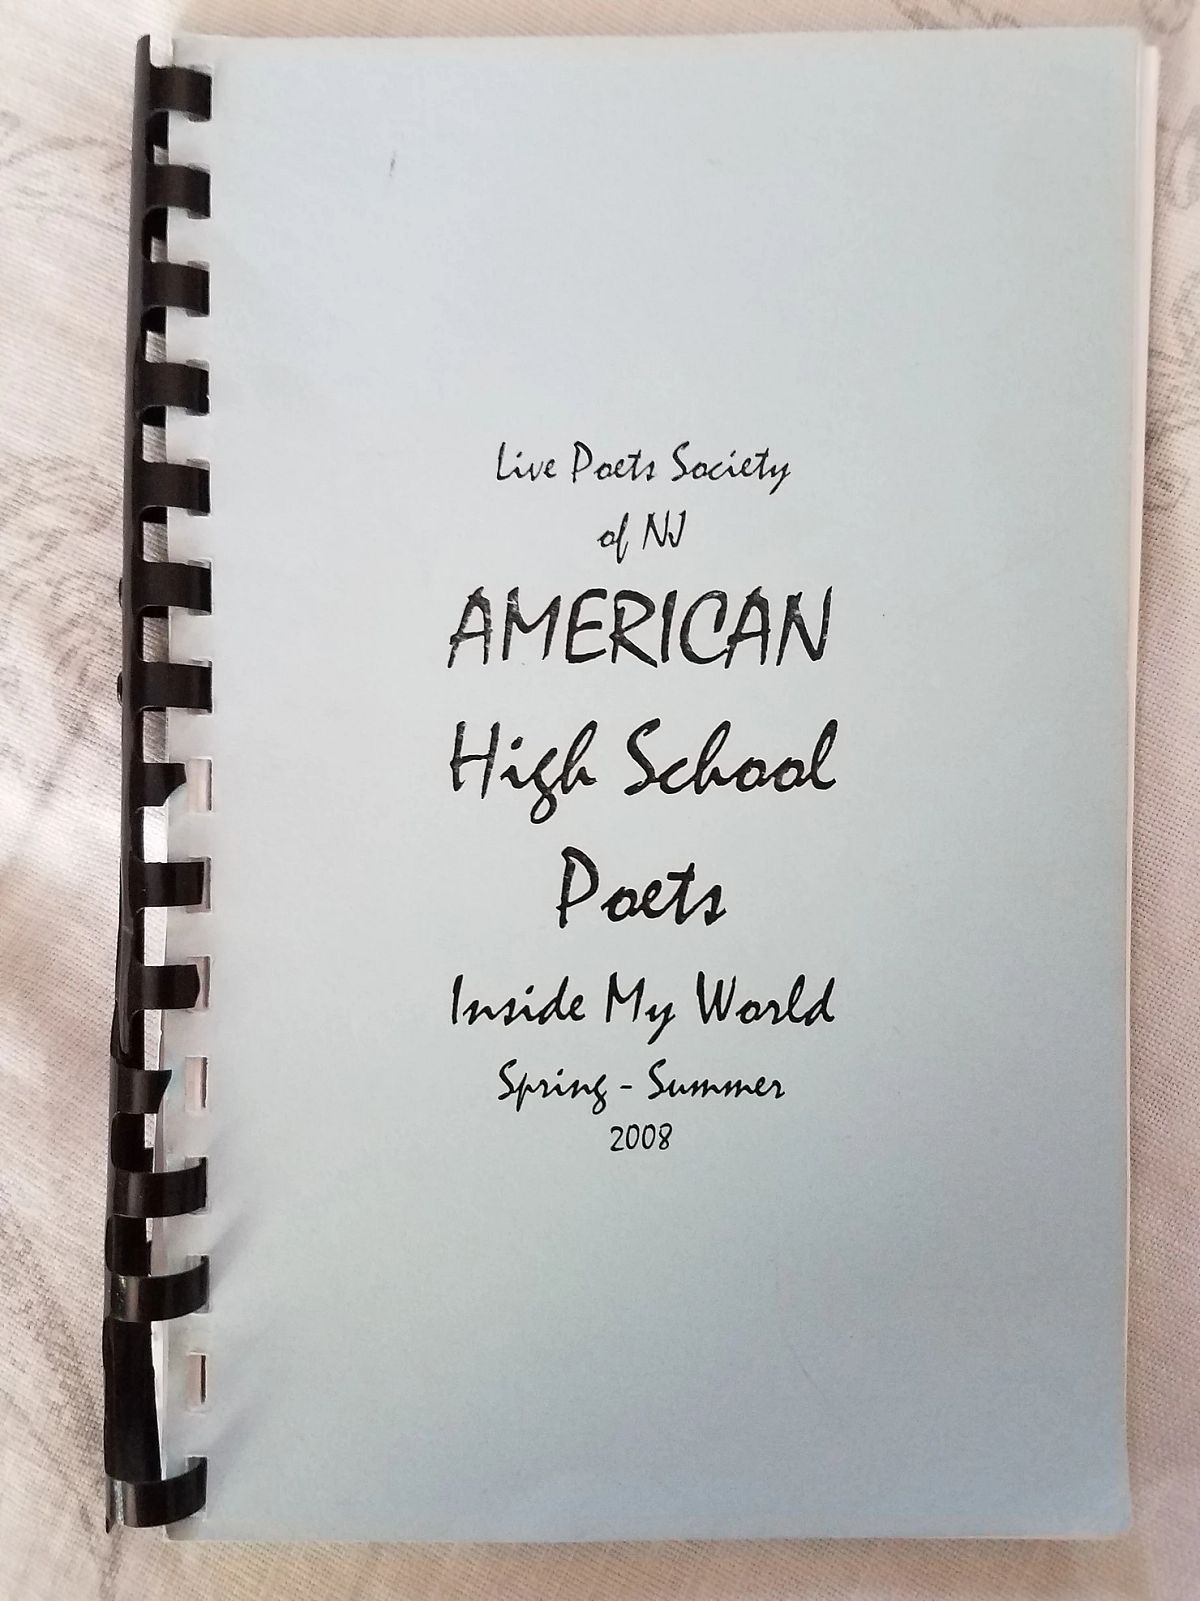 Live Poets Society
of NJ
AMERICAN
High School
Poets
Inside My World
Spring - Summer
2008